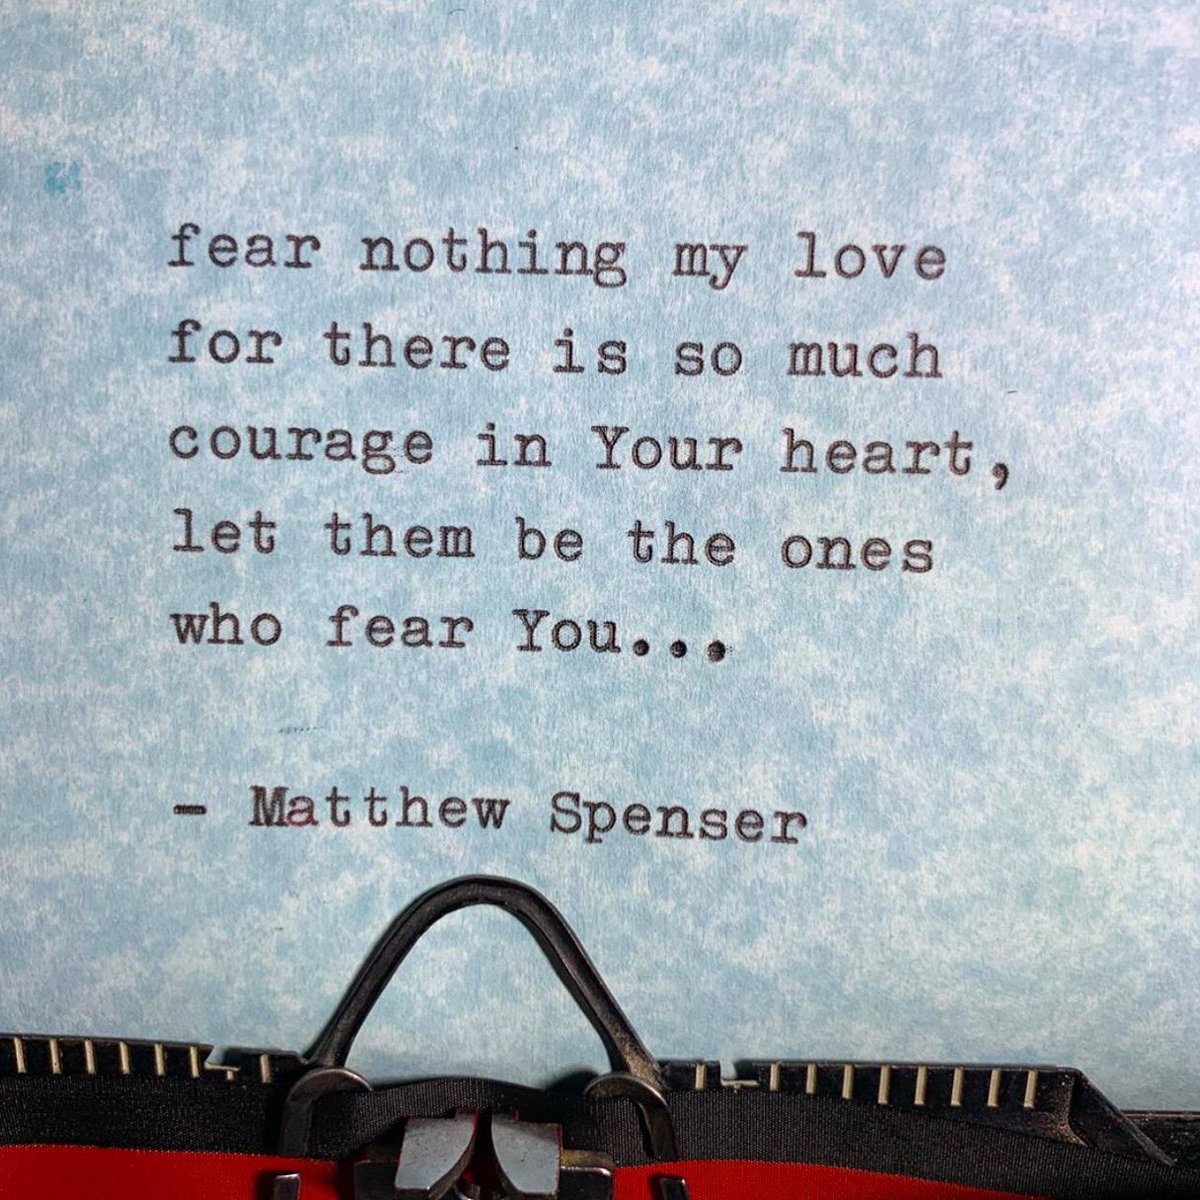 fear nothing my love
for there is so much
courage in Your heart,
let them be the ones
who fear You...
- Matthew Spenser